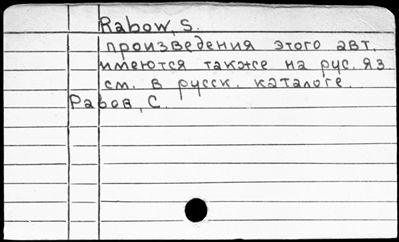 Rabow, S.
произведения этого авт.
имеются также на рус. яз.
см. в русск. каталоге.
Рабов, С.